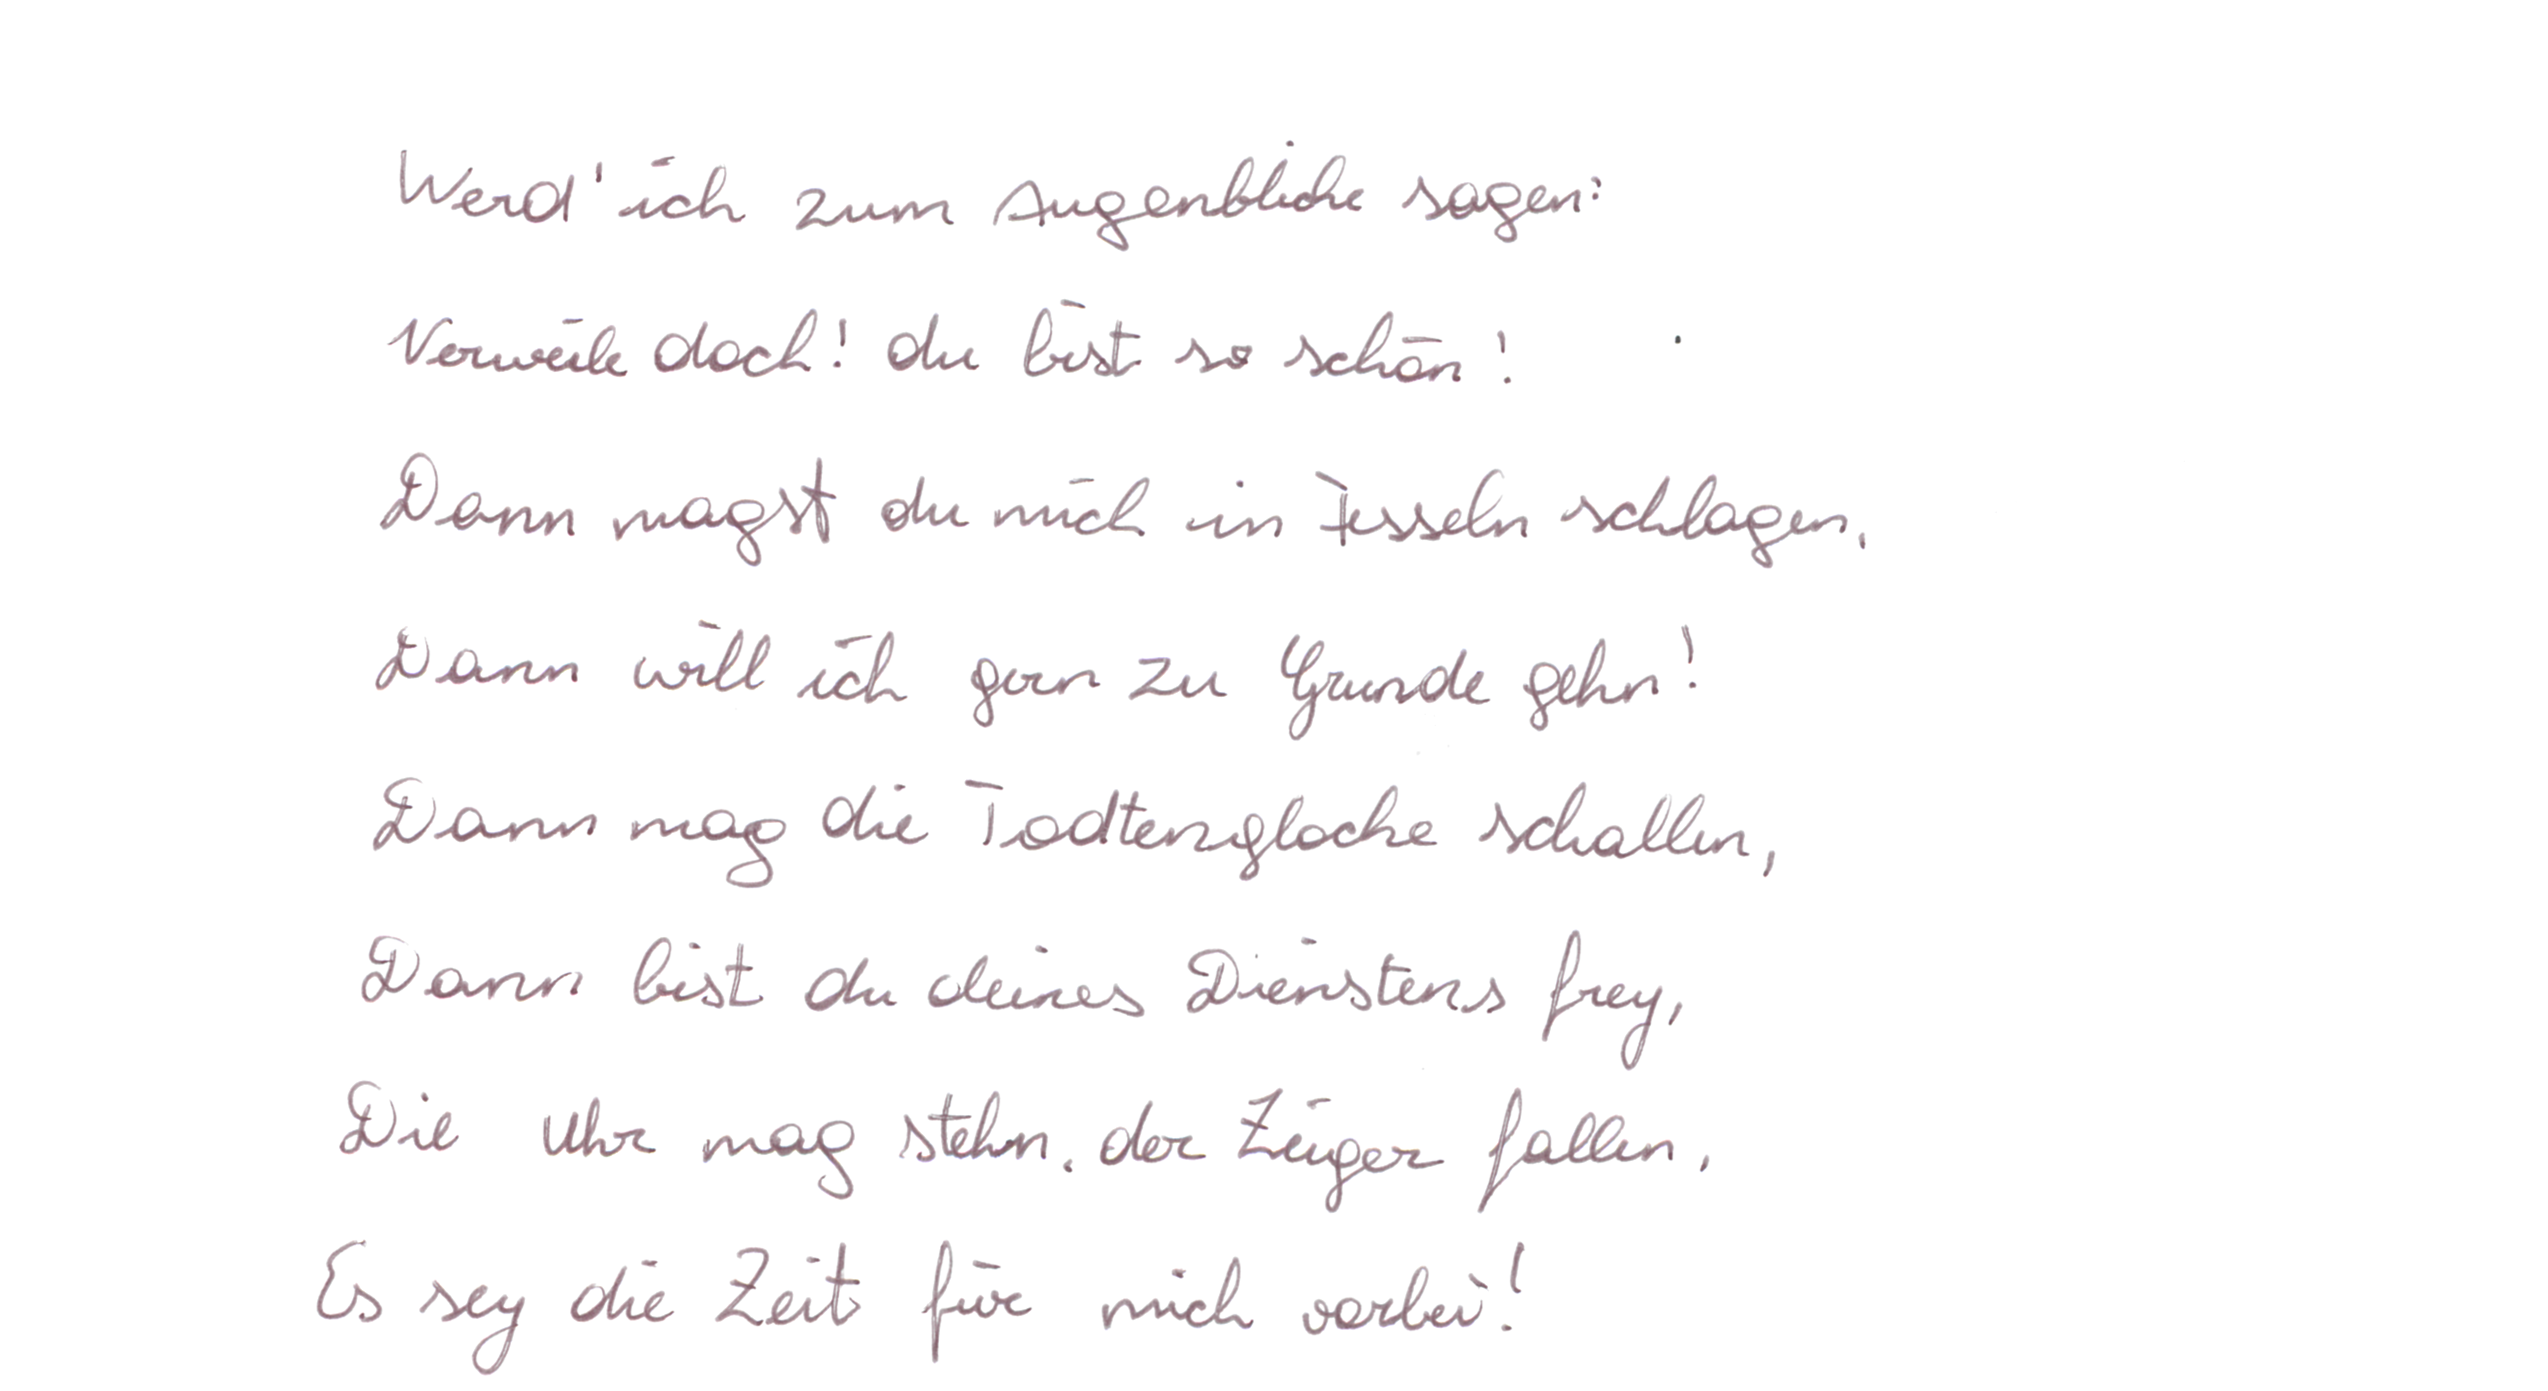 Werd' ich zum Augenblicke sagen:
Verweile doch! du bist so schön!
Dann magst du mich in Fesseln schlagen,
Dann will ich gern zu Grunde gehn!
Dann mag die Todtenglocke schallen,
Dann bist du deines Dienstens frey,
Die Uhr mag stehn, der Zeiger fallen,
Es sey die Zeit für mich vorbei!